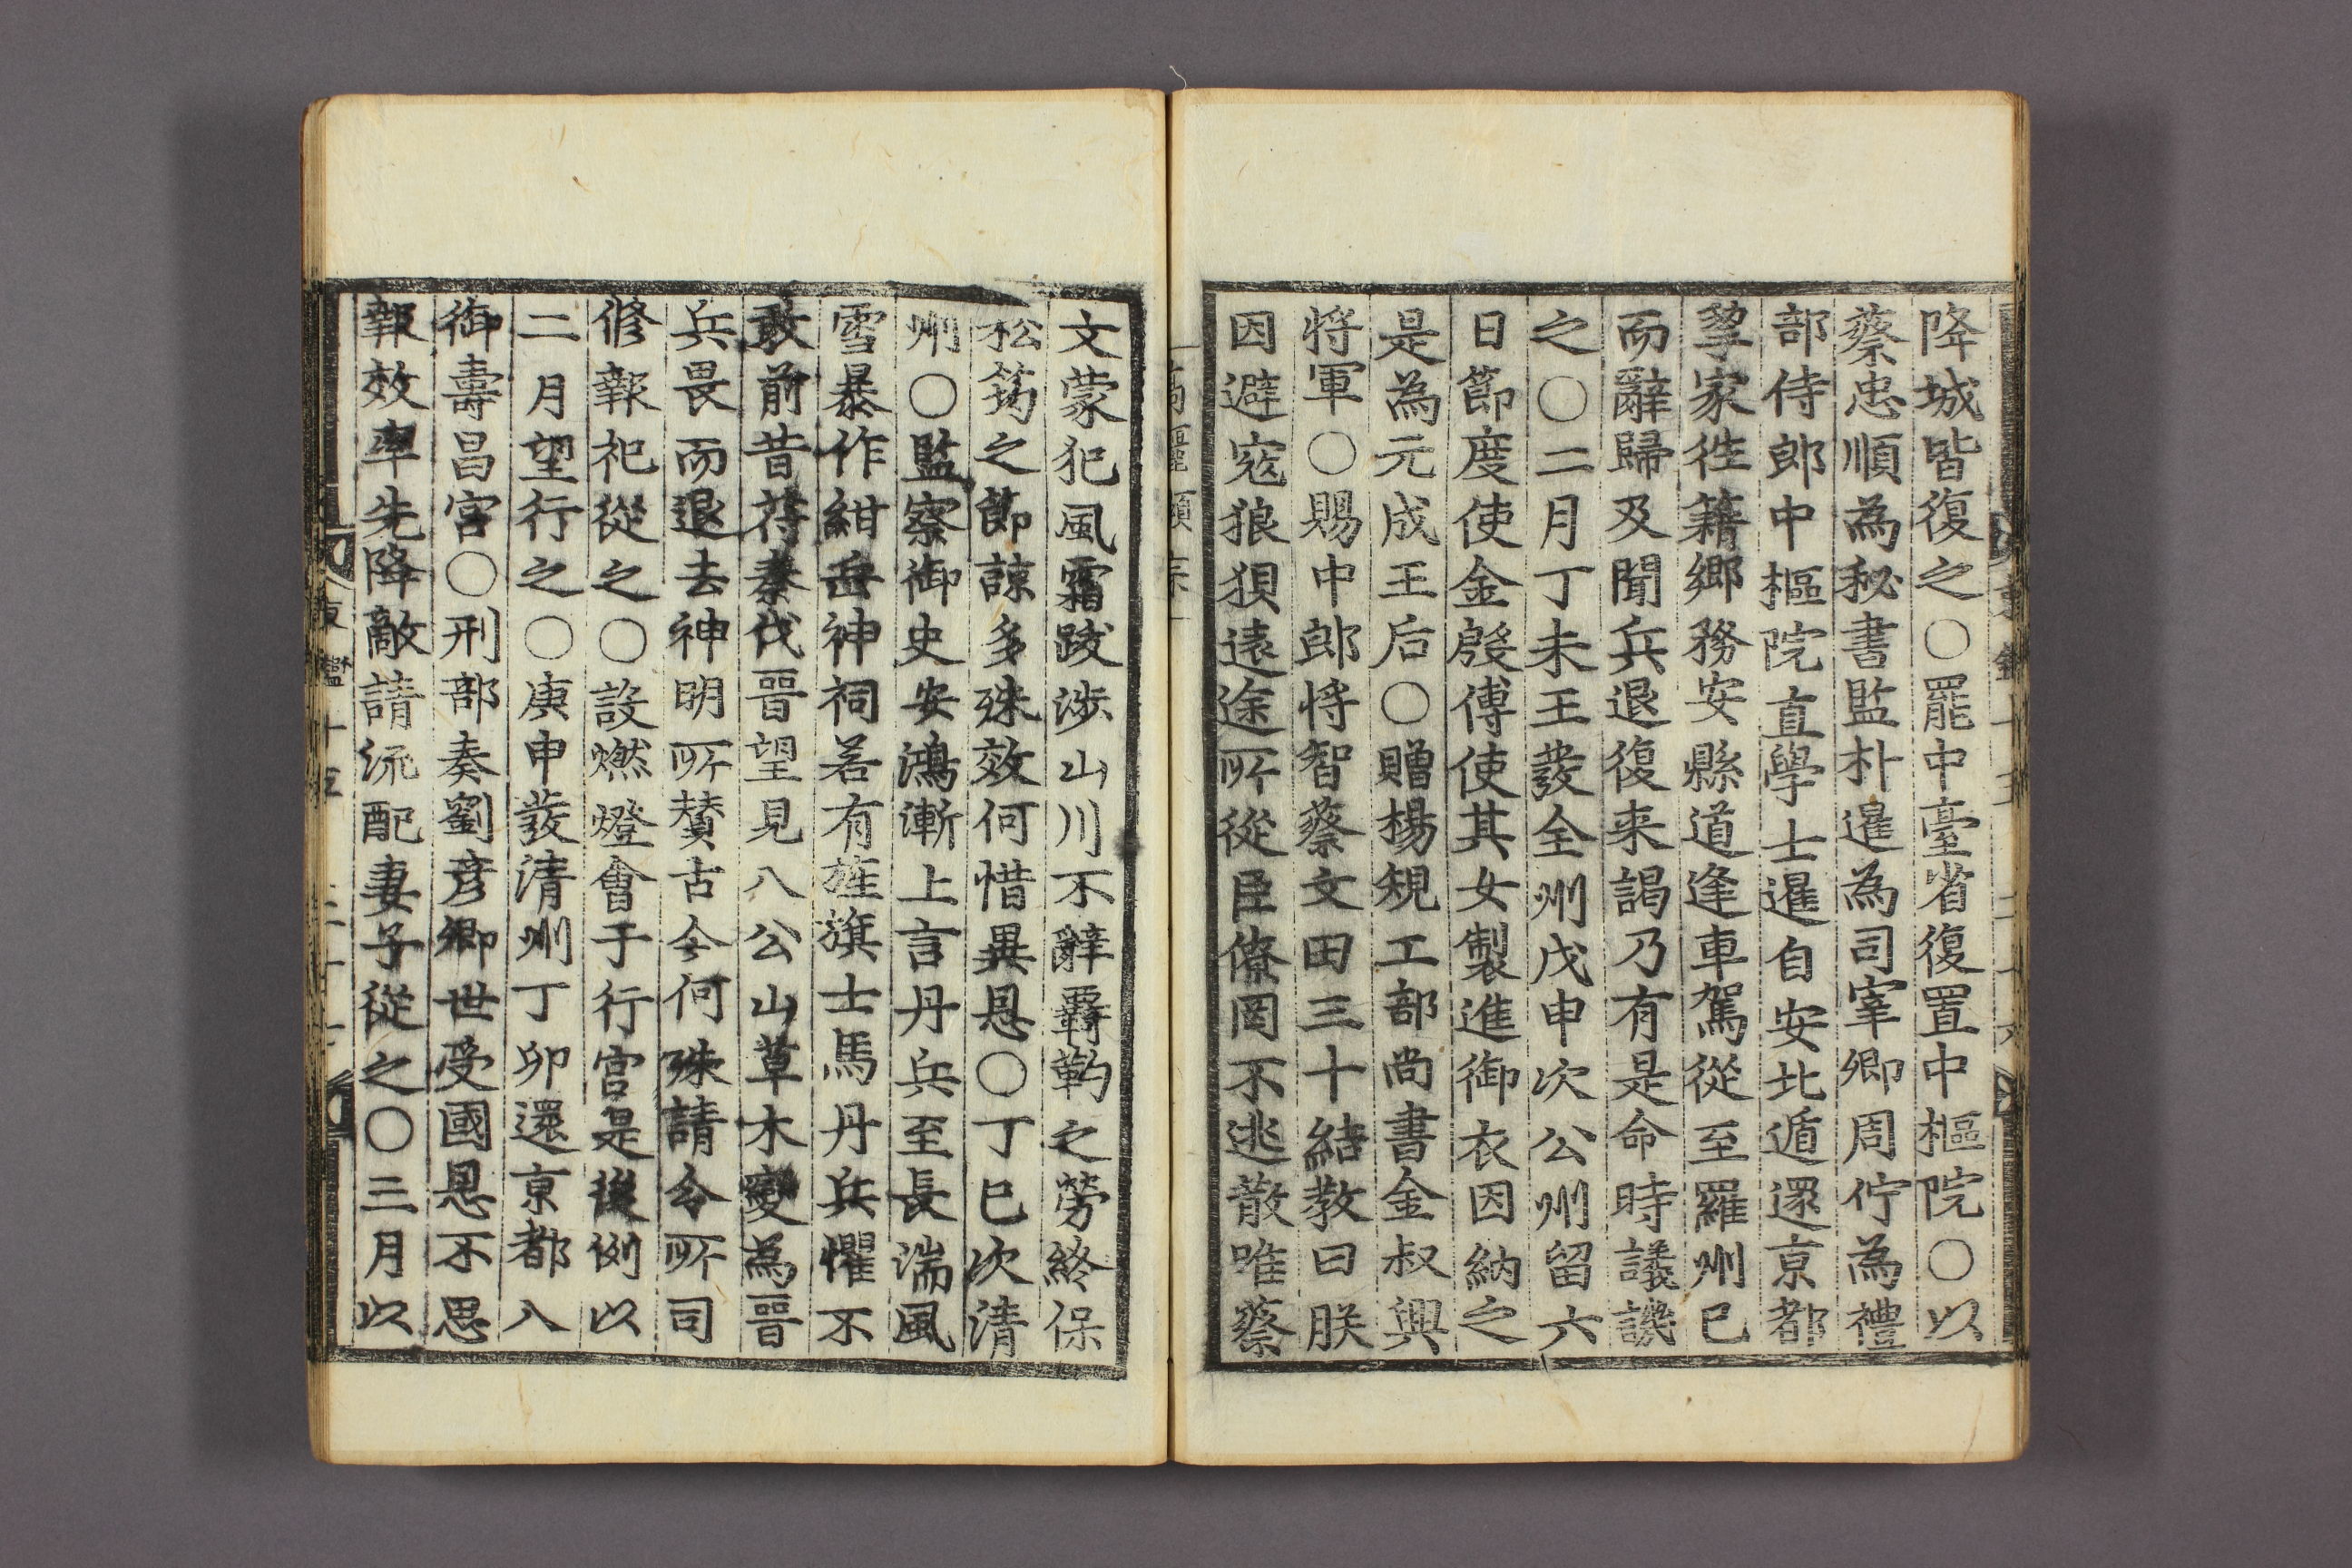 降城皆復之○罷中臺省復置中樞院○以
蔡忠順為秘書監朴暹為司宰卿周佇為禮
部侍郎中樞院直學士暹自安北遁還京都
挈家徃籍鄉務安縣道逢車駕從至羅州已
而辭歸及聞兵退復来謁乃有是命時議譏
之○二月丁未王發全州戊申次公州留六
日節度使金殷傅使其女製進御衣因納之
是為元成王后○贈楊規工部尚書金叔興
將軍○賜中郎将智蔡文田三十結教曰朕
因避寇狼狽遠途所從臣僚罔不逃散唯蔡
文蒙犯風霜跋涉山川不辭羈靮之勞終保
松筠之節諒多殊效何惜異恩○丁巳次清
州○監察御史安鴻漸上言丹兵至長湍風
雪暴作紺岳神祠若有旌旗士馬丹兵懼不
敢前昔苻秦伐晉望見八公山草木變為晉
兵畏而退去神明所賛古今何殊請令所司
修報祀從之○設燃燈會于行宮是後例以
二月望行之○庚申發清州丁卯還京都入
御壽昌宮○刑部奏劉彦卿世受國恩不思
報效率先降敵請流配妻子從之○三月以
東鑑十五